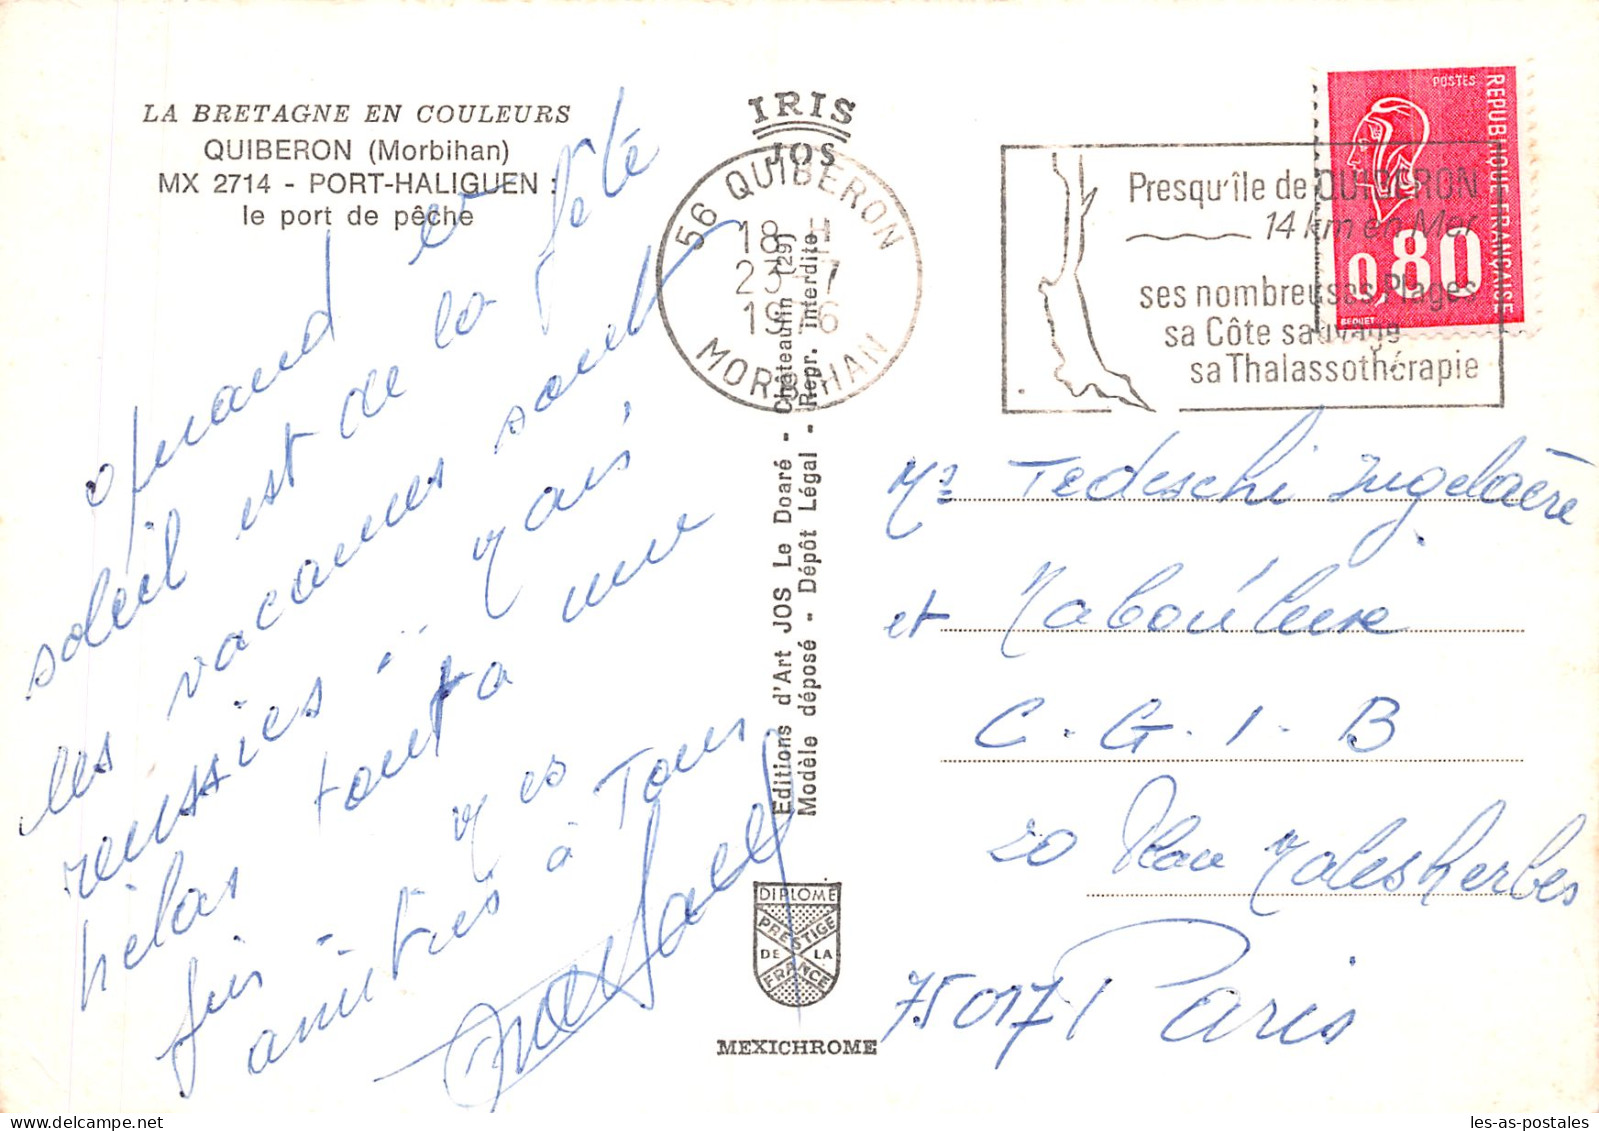 LA BRETAGNE EN COULEURS
QUIBERON (Morbihan)
MX 2714 - PORT-HALIGUEN :
le port de pêche
quand le
soleil est de la fête
les vacances sont
reussies !! Mais,
hélas tout a une
fin - Mes
amitiés à Tous
IRIS
JOS
56 QUIBERON
18 H
23 - 7
1976
MORBIHAN
Editions d'Art JOS Le Doaré - Châteaulin (29)
Modèle déposé - Dépôt Légal - Repr. interdite
DIPLOME
PRESTIGE
DE LA
FRANCE
MEXICHROME
Presqu'île de QUIBERON
14 km en Mer
ses nombreuses Plages
sa Côte sauvage
sa Thalassothérapie
POSTES
REPUBLIQUE FRANÇAISE
0,80
BEQUET
Tedeschi Ingelaère
et
C. G. I. B
20 Place Malesherbes
75017 Paris
les-as-postales